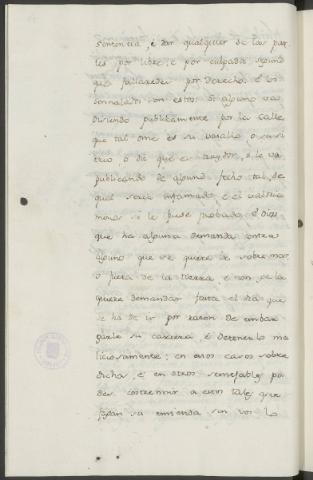 sentencia, é dar qualquier de las par
tes por libre, é por culpada segund
que fallaredes por derecho. E los
sennalados son estos: Si alguno va
diciendo publicamente por la calle
que tal ome es su vasallo, o su si
ervo, o diz que es traydor, o le va
publicando de alguno fecho tal, de
que seria infamado, e él valdria
menos si le fuese probado. E otrosi
que ha alguna demanda contra
alguno que se quiere ir sobre mar,
o fuera de la tierra, e non ge la
quiere demandar fasta el dia que
se ha de ir por razon de embar
garle su carrera, é detenerlo ma
liciosamente; en esos casos sobre
dichos, é en otros semejables po
des costrennir a esos tales que
fagan su enmienda sin vos lo